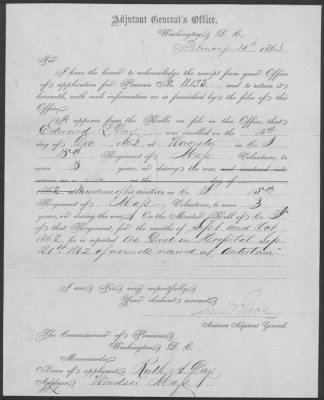 Adjutant General's Office,
Washington, D. C.
February 1863.
Sir:
I have the honor to acknowledge the receipt from your Office
of application for Pension No. and to return it
herewith, with such information as is furnished by the files of this
Office.
It appears from the Rolls on file in this Office, that
Edward L. Day was enrolled on the 4th
day of Dec 1861, at in Co.
15th Regiment of Mass Volunteers, to
serve 3 years, or during the war,
in Co. 15th
Regiment of Mass Volunteers, to serve 3
years, or during the war. On the Muster Roll of Co.
of that Regiment, for the months of Sept and Oct
1862, he is reported as Died in Hospital Sep.
1862 of wounds recvd at Antietam
I am Sir, very respectfully,
Your obedient servant,
Assistant Adjutant General.
The Commissioner of Pensions,
Washington, D. C.
Memoranda
Name of applicant, Ruth A. Day
Address, Windsor Mass